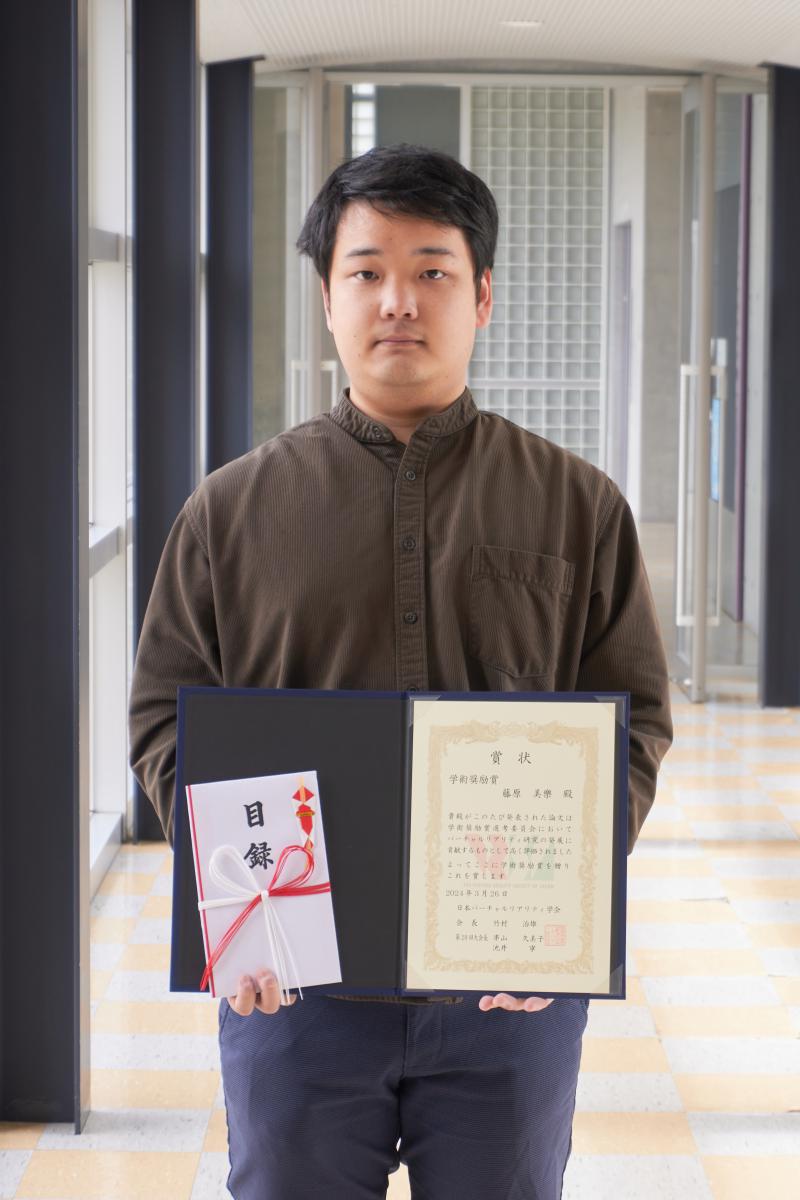 目録
賞状
学術奨励賞
藤原 美樂 殿
貴殿がこのたび発表された論文は
学術奨励賞選考委員会において
バーチャルリアリティ研究の発展に
貢献するものとして高く評価されました
よってここに学術奨励賞を贈り
これを賞します
THE VIRTUAL REALITY SOCIETY OF JAPAN
2024年3月26日
日本バーチャルリアリティ学会
会長 竹村 治雄
第28回大会長 串山 久美子
池井 寧